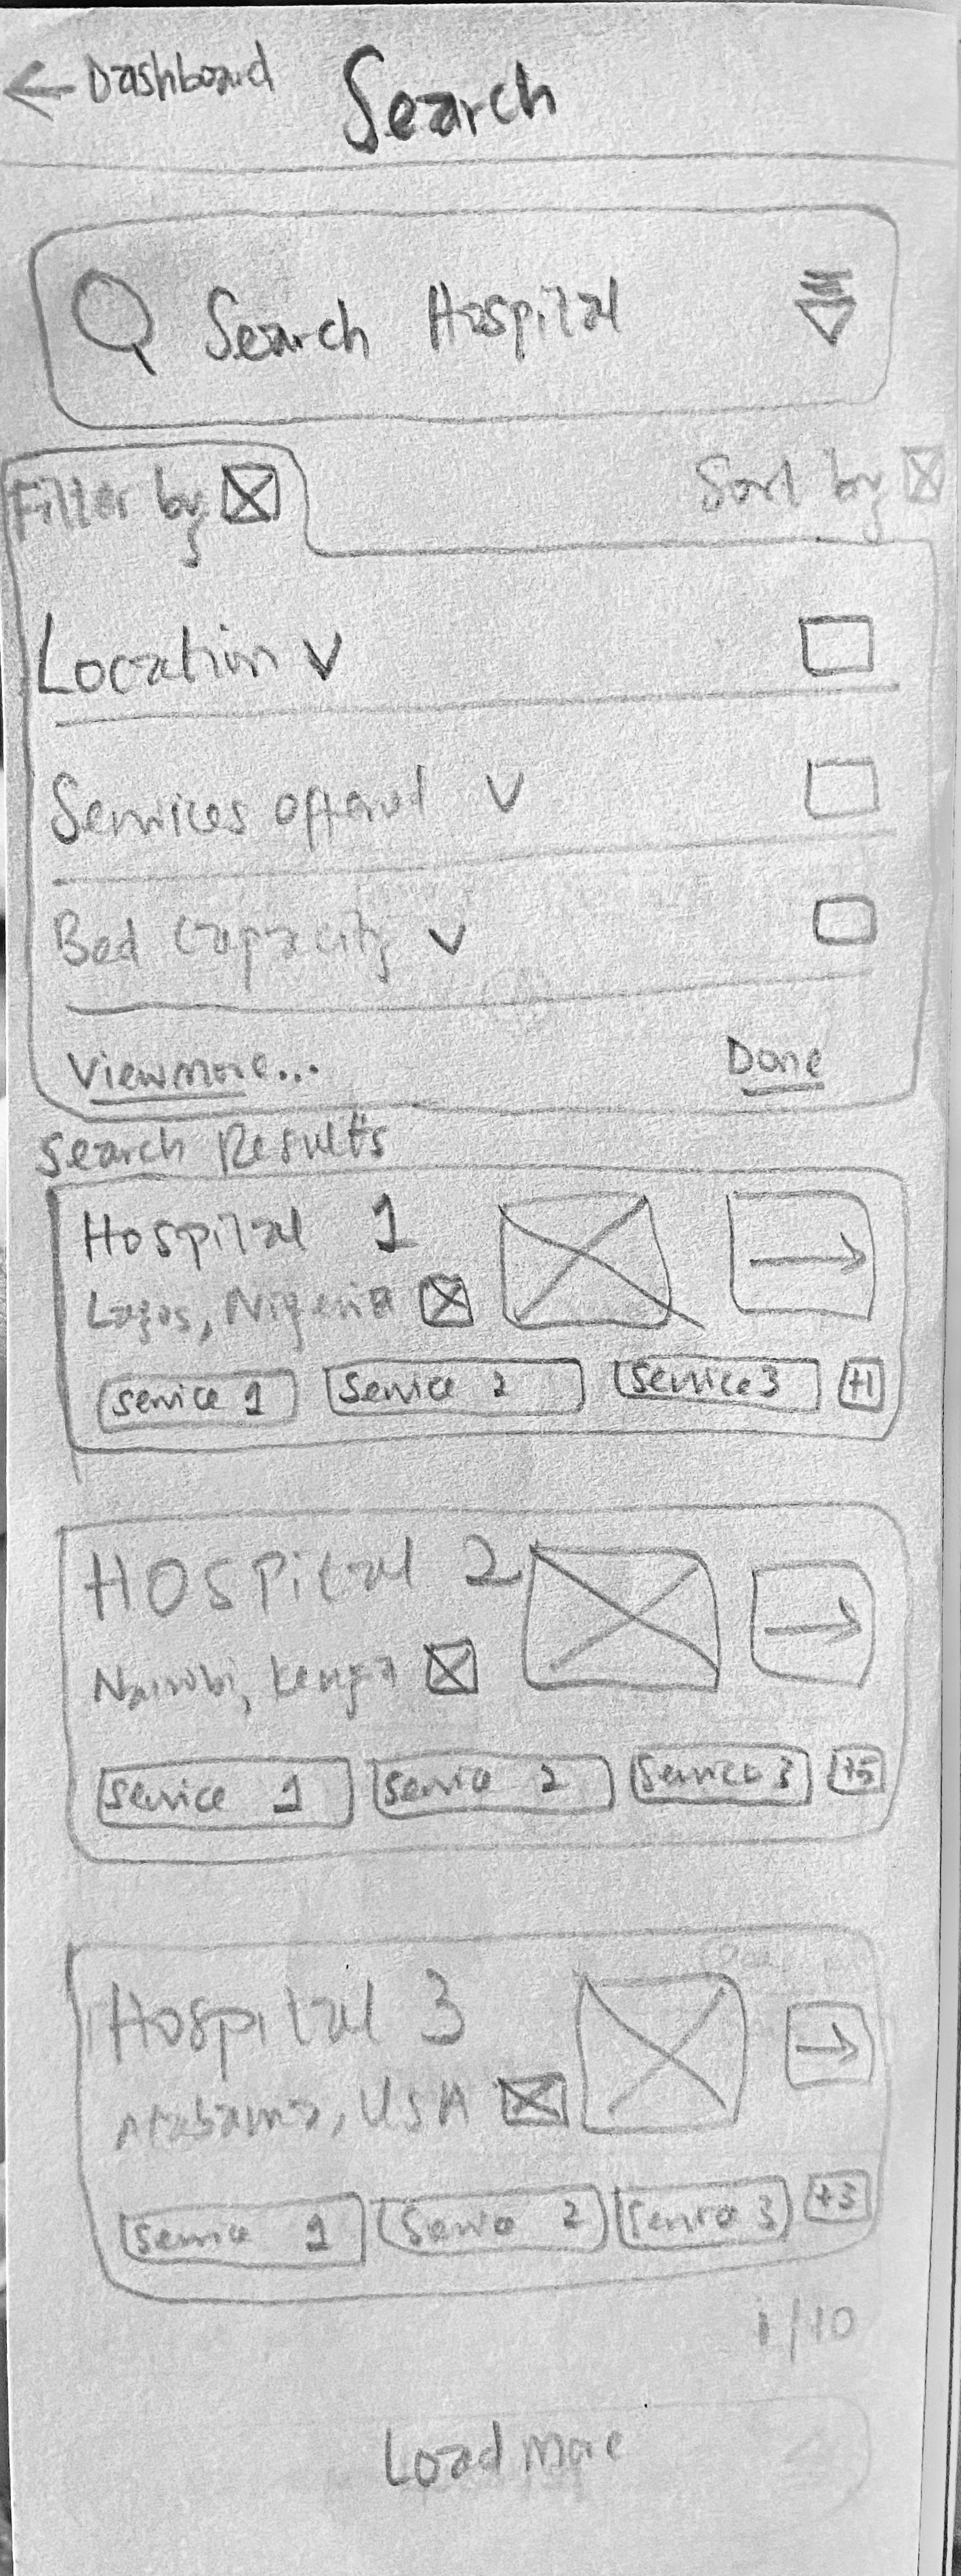 ← Dashboard
Search
Search Hospital
Filter by
Sort by
Location
Services offered
Bed Capacity
View more...
Done
Search Results
Hospital 1
Lagos, Nigeria
Service 1 Service 2 Service 3 +1
Hospital 2
Nairobi, Kenya
Service 1 Service 2 Service 3 +5
Hospital 3
Alabama, USA
Service 1 Service 2 Service 3 +3
1/10
Load more